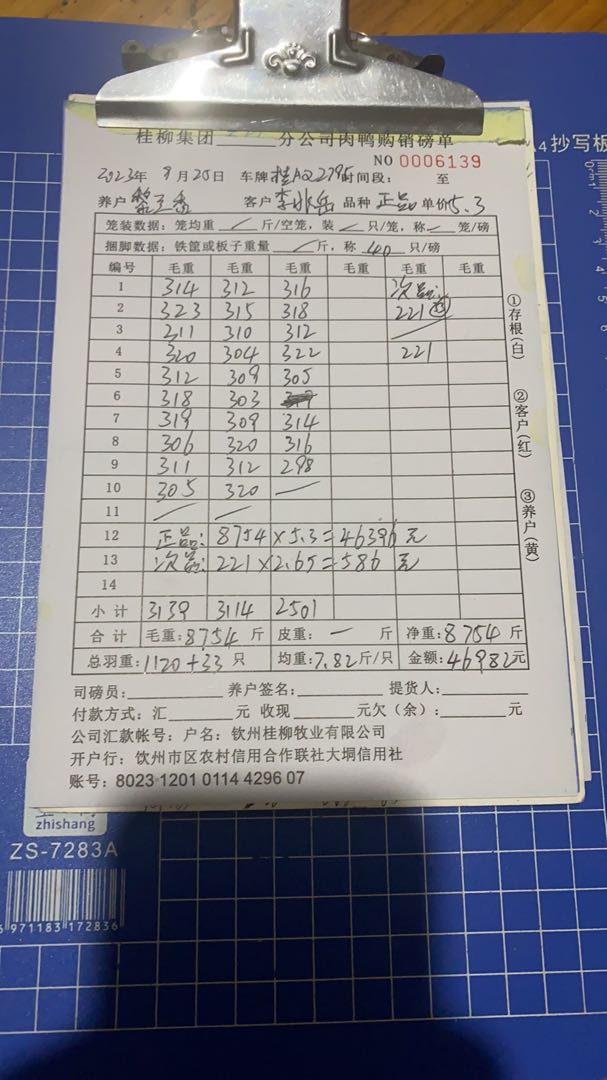 桂柳集团______分公司肉鸭购销磅单
NO 0006139
4抄写板
2023年 9月20日 车牌 桂AQ2795 时间段: 至
养户 客户 李 品种 正品 单价 5.3
笼装数据: 笼均重 / 斤/空笼, 装 / 只/笼, 称 / 笼/磅
捆脚数据: 铁筐或板子重量 / 斤, 称 40 只/磅
编号 毛重 毛重 毛重 毛重 毛重 毛重
1 314 312 316 次品:
2 323 315 318 221
3 211 310 312 /
4 320 304 322 221
5 312 309 305
6 318 303
7 319 309 314
8 306 320 316
9 311 312 298
10 305 320 /
11 / /
12 正品: 8754×5.3=46396元
13 次品: 221×2.65=586元
14
小计 3139 3114 2501
合计 毛重: 8754 斤 皮重: — 斤 净重: 8754 斤
总羽重: 1120+33 只 均重: 7.82 斤/只 金额: 46982元
①存根(白)
②客户(红)
③养户(黄)
司磅员:________ 养户签名:________ 提货人:________
付款方式: 汇______元 收现______元欠(余):______元
公司汇款帐号: 户名: 钦州桂柳牧业有限公司
开户行: 钦州市区农村信用合作联社大垌信用社
账号: 8023 1201 0114 4296 07
zhishang
ZS-7283A
971183 172836